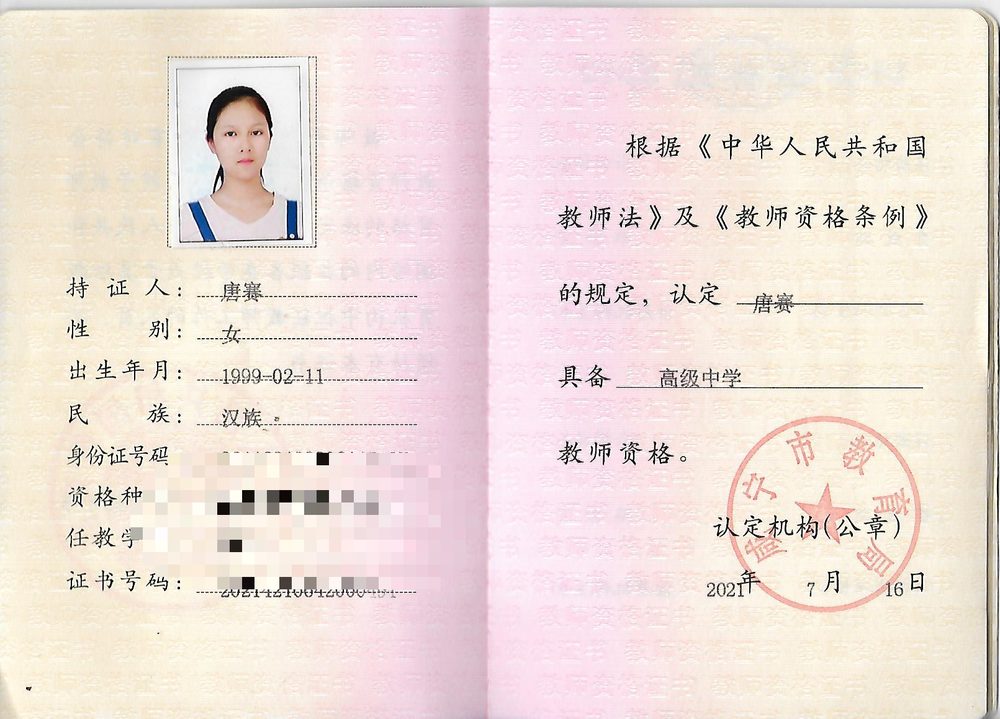 持证人：唐赛
性别：女
出生年月：1999-02-11
民族：汉族
身份证号码
资格种
任教学
证书号码：
根据《中华人民共和国
教师法》及《教师资格条例》
的规定，认定 唐赛
具备 高级中学
教师资格。
咸宁市教育局
认定机构(公章)
2021年7月16日